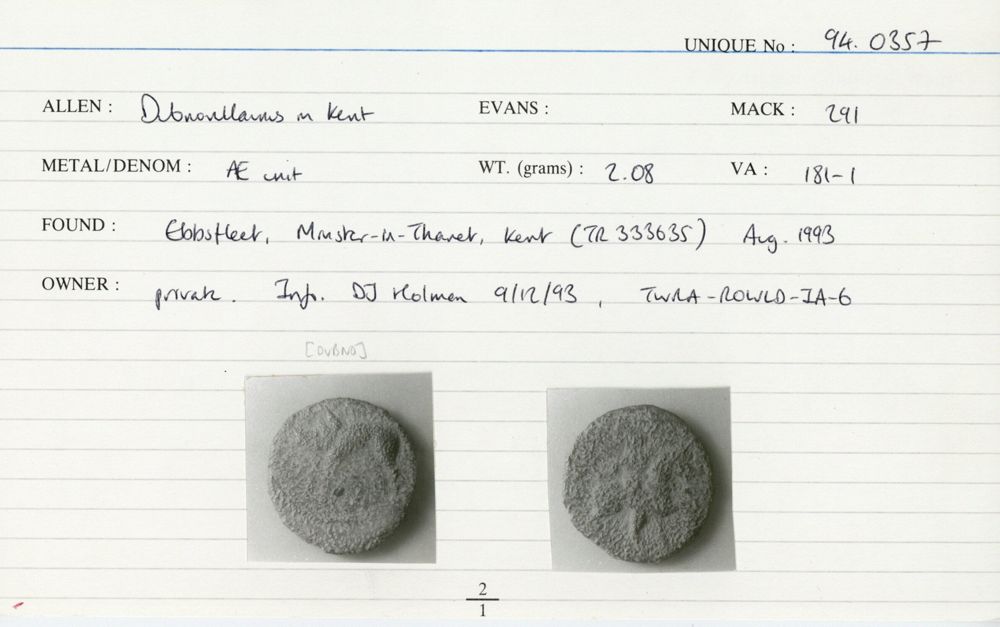 UNIQUE No : 94. 0357
ALLEN : Dubnovellaunus in Kent EVANS : MACK : 291
METAL/DENOM : Æ unit WT. (grams) : 2.08 VA : 181-1
FOUND : Ebbsfleet, Minster-in-Thanet, Kent (TR 333635) Aug. 1993
OWNER : private. Info. DJ Holman 9/12/93, TWRA-ROWLD-IA-6
[DVBNO]
2
1